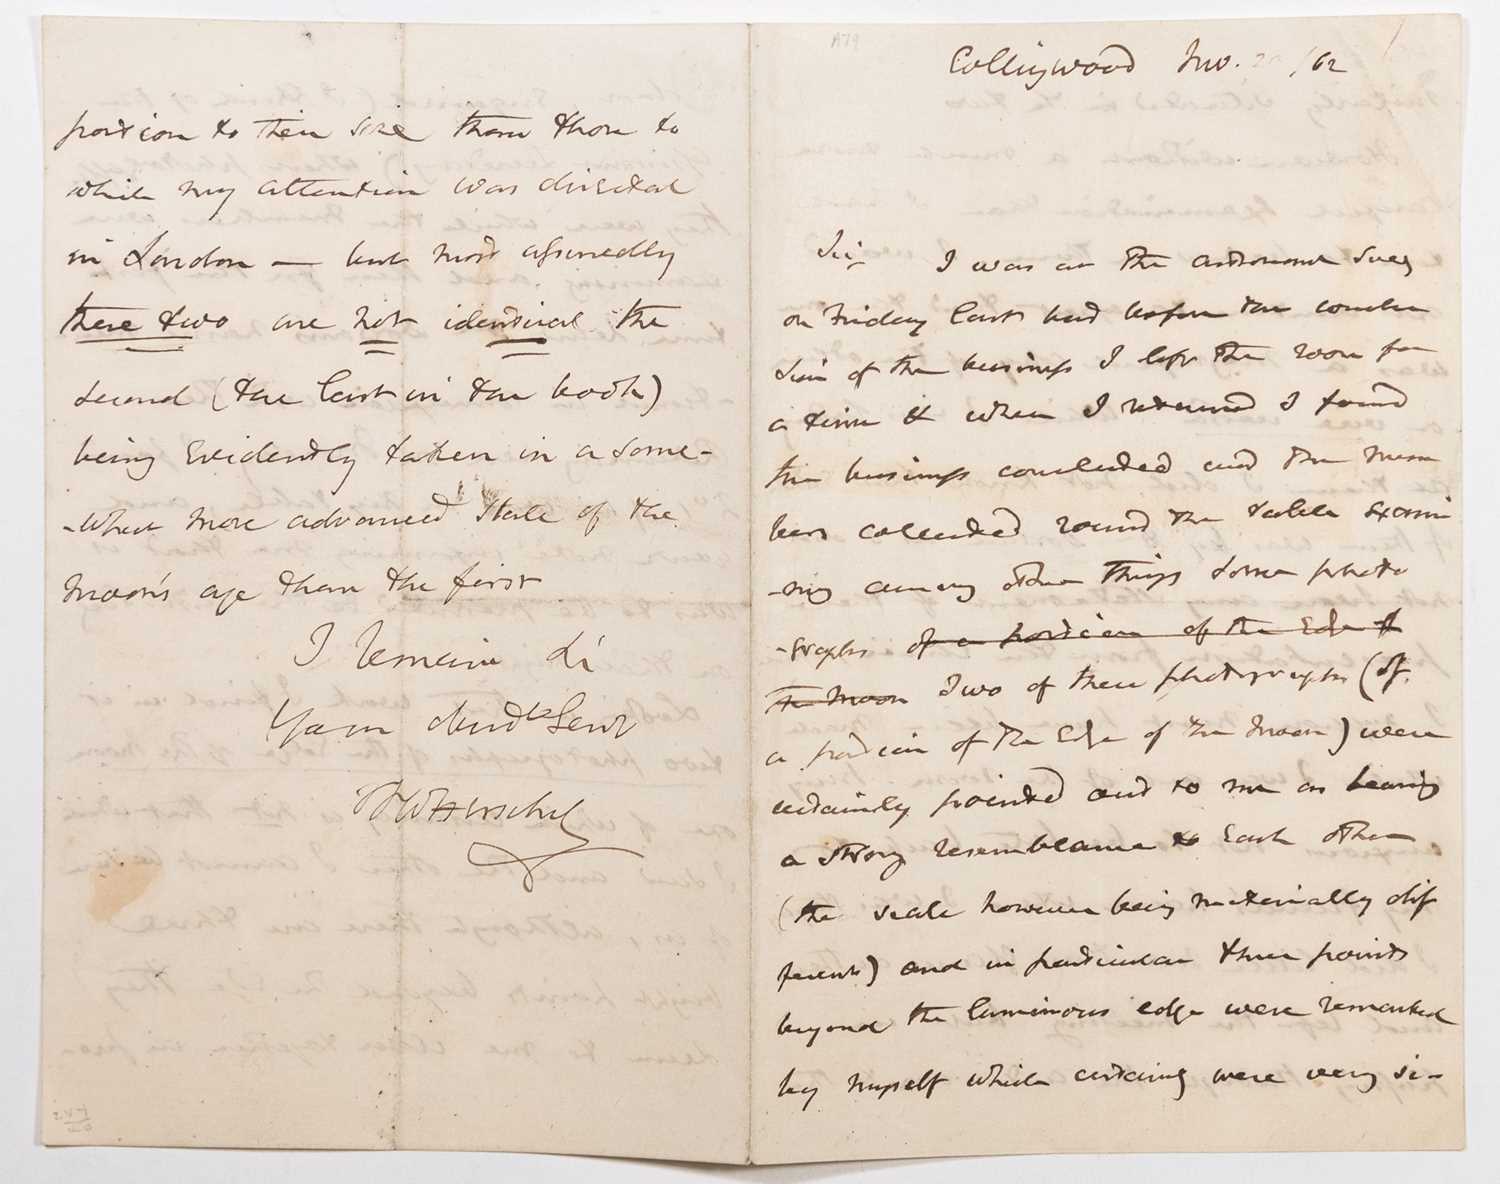 Collingwood Nov. /62
Sir, I was at the
on Friday last but before the conclu
sion of the business I left the room for
a time & when I returned I found
the business concluded and the mem
bers collected round the table exami
-ning among other things some photo
-graphs of a portion of the Edge of
the Moon Two of these photographs (of
a portion of the Edge of the Moon) were
certainly pointed out to me as bearing
a strong resemblance to each other
(the scale however being materially dif
ferent) and in particular three points
beyond the luminous edge were remarked
by myself which certainly were very si-
portion to their size than those to
which my attention was directed
in London — but most assuredly
these two are not identical the
second (the last in the book)
being evidently taken in a some-
-what more advanced state of the
moon's age than the first
I remain Sir
Your obedt Servt
JFWHerschel
A79